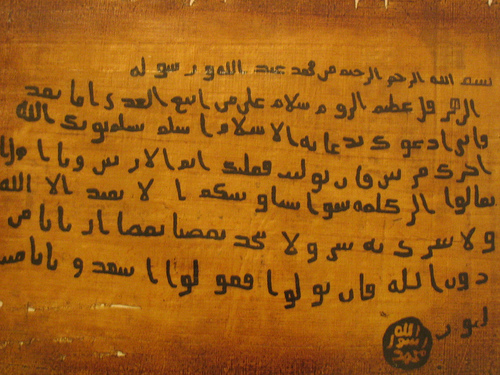 بسم الله الرحمن الرحيم من محمد عبد الله و رسوله
الى هرقل عظيم الروم سلام على من اتبع الهدى اما بعد
فانى ادعوك بدعاية الاسلام اسلم تسلم يوتك الله
اجرك مرتين فان توليت فعليك اثم الاريسين ويا اهل
تعالوا الى كلمة سوا بيننا وبينكم الا نعبد الا الله
ولا نشرك به شى ولا يتخذ بعضنا بعضا اربابا من
دون الله فان تولوا فقولوا اشهدوا بانا مس
لمون
الله
رسول
محمد